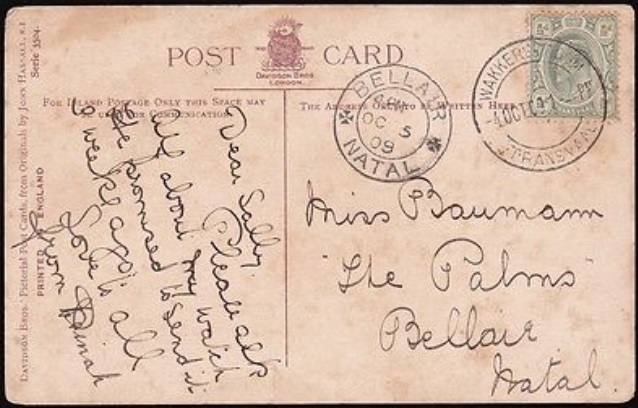 POST CARD
DAVIDSON BROS.
LONDON.
FOR INLAND POSTAGE ONLY THIS SPACE MAY
COMMUNICATION.
THE ADDRESS WRITTEN HERE
DAVIDSON BROS.' PICTORIAL POST CARDS, FROM ORIGINALS BY JOHN HASSALL, R.I
SERIE 3304.
PRINTED ENGLAND
BELLAIR
OC 5
09
NATAL
WAKKERS
4 OCT
TRANSVAAL
Dear Sally.
Please ask
all about my watch
He promised to send it
a week ago.
Love to all
from Dinah
Miss Baumann
"The Palms"
Bellair
Natal.